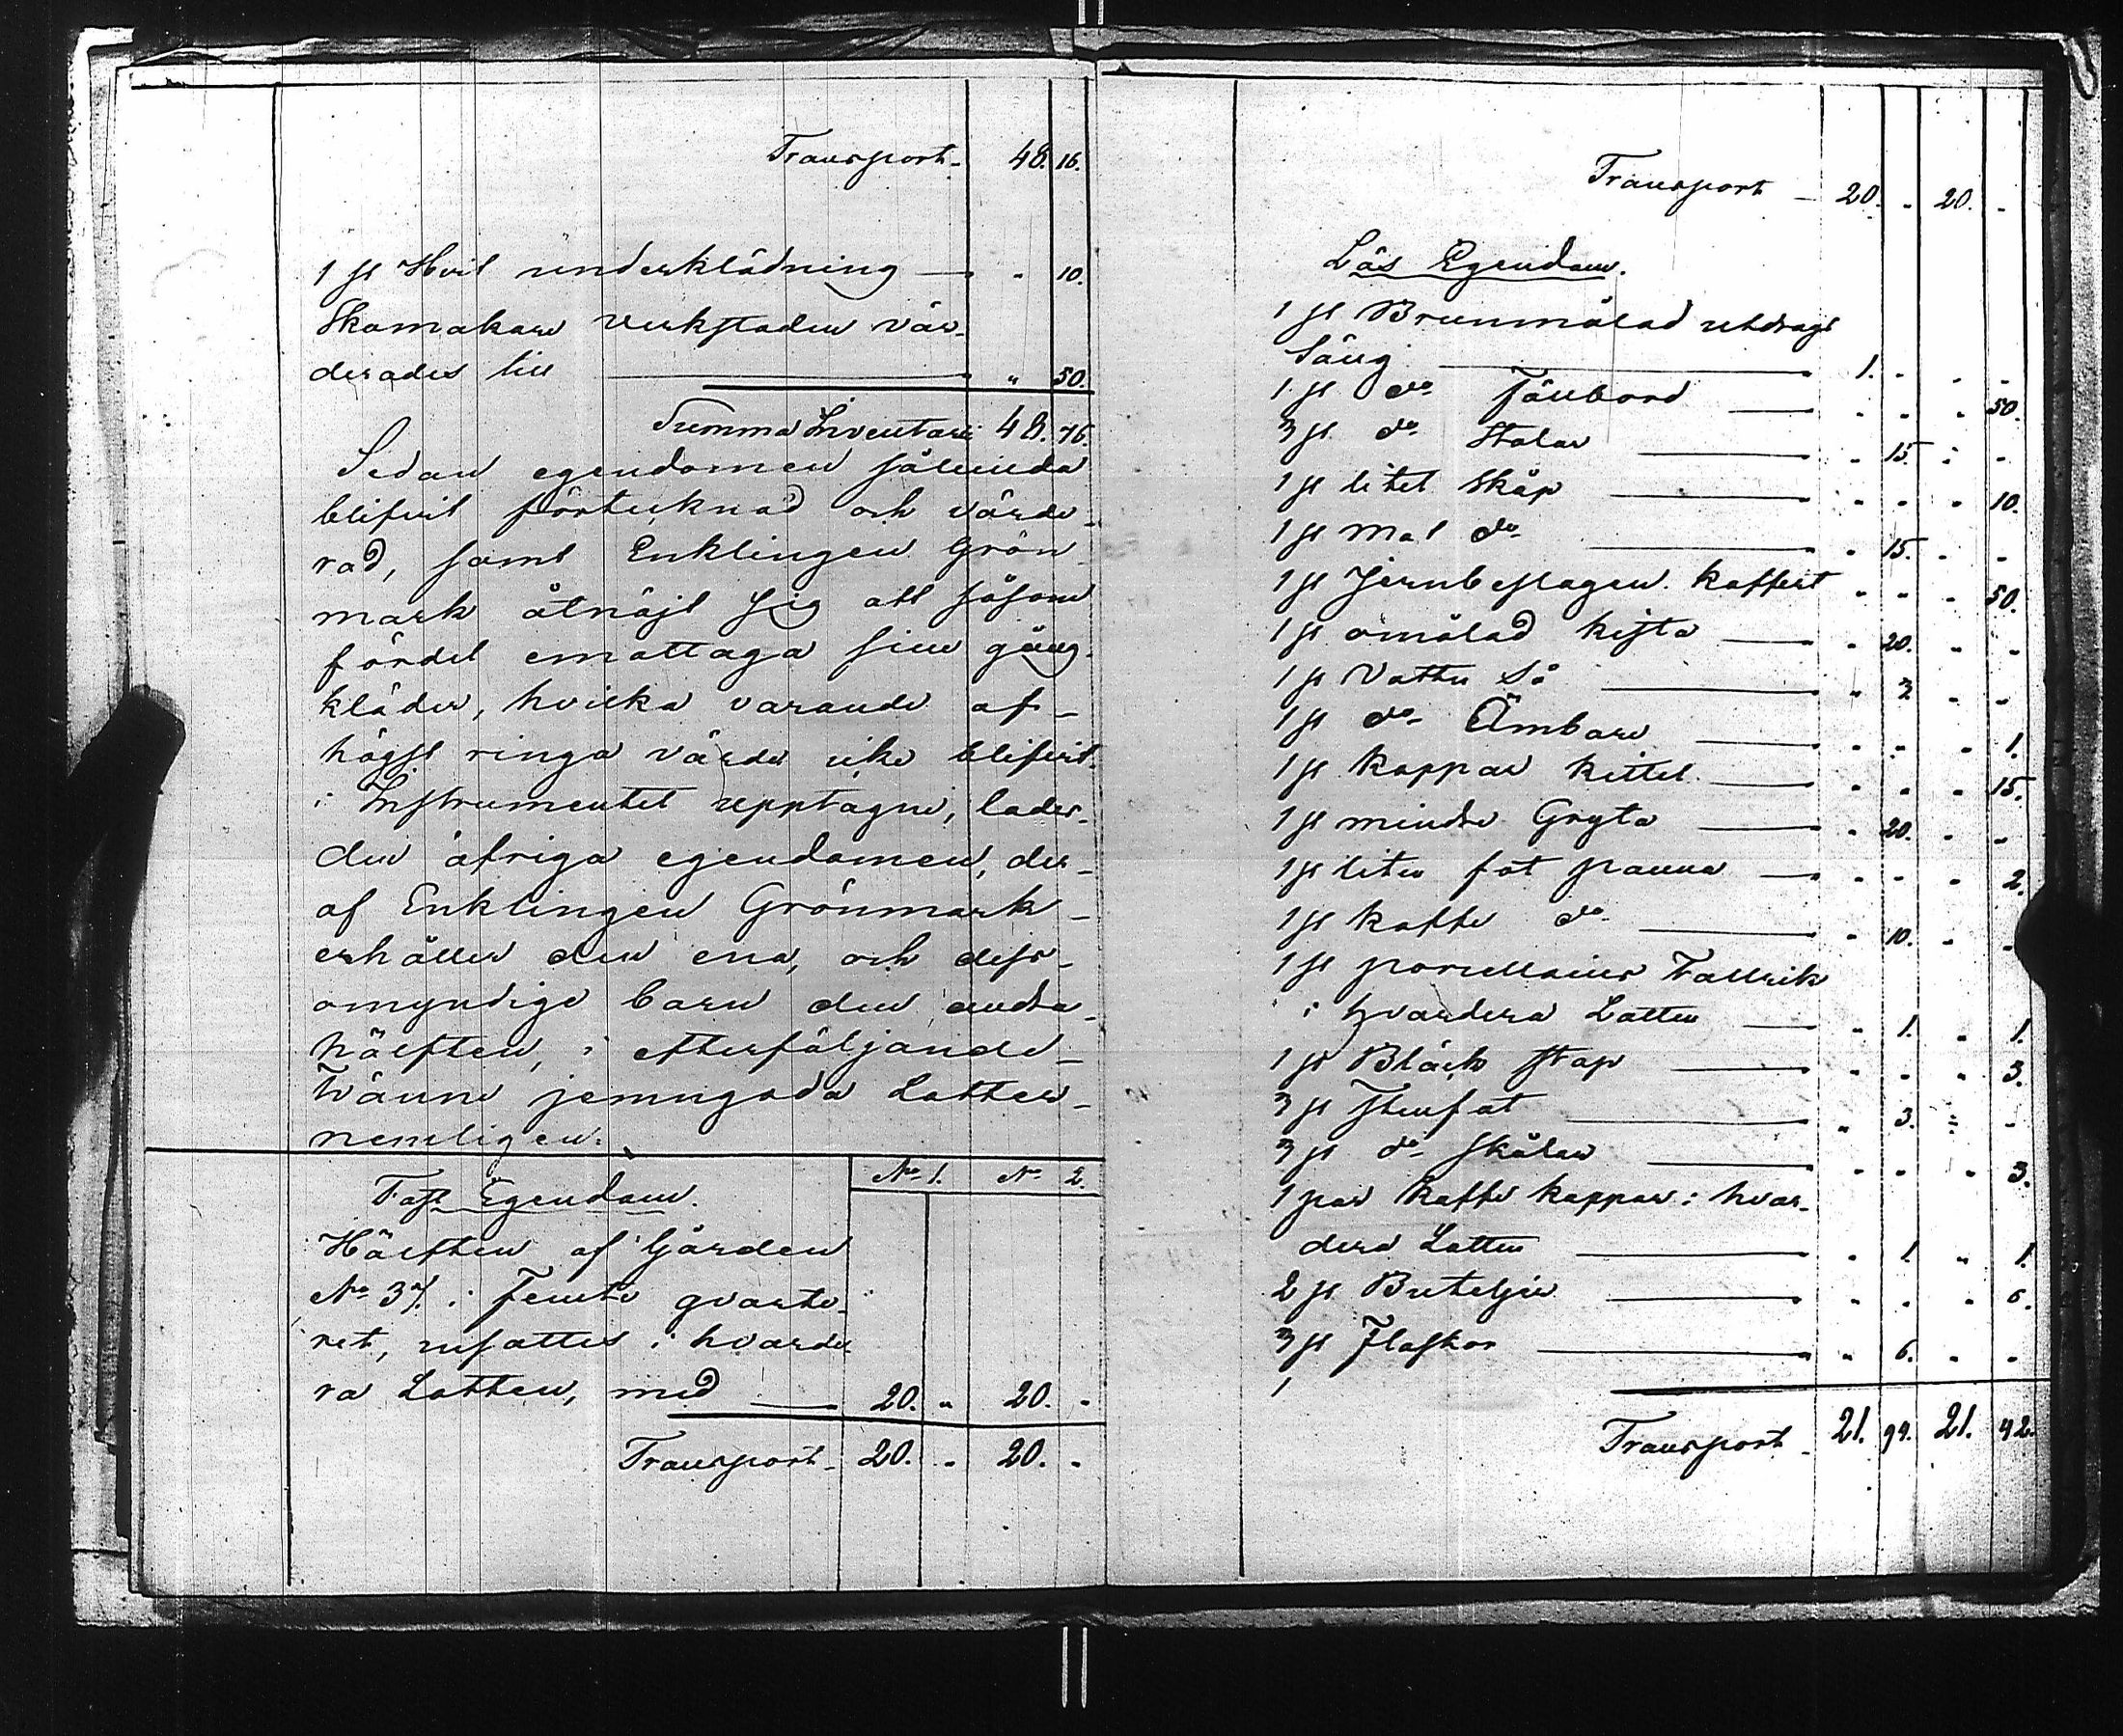 Transport 48. 16.
1 st Hvit underklädning — " 10.
Skomakare verkstaden vär-
derades till — " 50.
Summa Inventarii 48. 76.
Sedan egendomen sålunda
blifvit förtecknad och värde-
rad, samt Enklingen Grön
mark åtnöjt sig att såsom
fördel emottaga sine gång-
kläder, hvilka varande af
högst ringa värde icke blifvit
i Instrumentet upptagne, lades
den öfriga egendomen, der-
af Enklingen Grönmark
erhåller den ena, och dess
omyndige barn den andra
hälften, i efterföljande
tvänne jemngoda Lotter
nemligen:
Fast Egendom. No 1. No 2.
Hälften af Gården
No 37. i Femte qvarte-
ret, insattes i hvarde
ra Lotten, med — 20. " 20. "
Transport 20. " 20. "
Transport — 20. " 20. "
Lös Egendom.
1 st Brunmålad utdrags
Säng — 1. " " "
1 st do Fällbord — " " " 50.
3 st do Stolar — " 15. " "
1 st litet Skåp — " " " 10.
1 st Mat do — " 15. " "
1 st Jernbeslagen koffert " " " 50.
1 st omålad kista — " 20. " "
1 st Vattu Så — " 3. " "
1 st do Ämbare — " " " 1.
1 st koppar kittel — " " " 15.
1 st mindre Gryta — " 20. " "
1 st liten fot panna — " " " 2.
1 st kaffe do — " 10. " "
1 st porcellains Tallrik
i hvardera Lotten — " 1. " 1.
1 st Bläck stop — " " " 3.
3 st stenfat — " 3. " "
3 st do skålar — " " " 3.
1 par kaffe koppar i hvar-
dera Lotten — " 1. " 1.
2 st Buteljer — " " " 6.
3 st Flaskor — " 6. " "
1
Transport 21. 94. 21. 42.